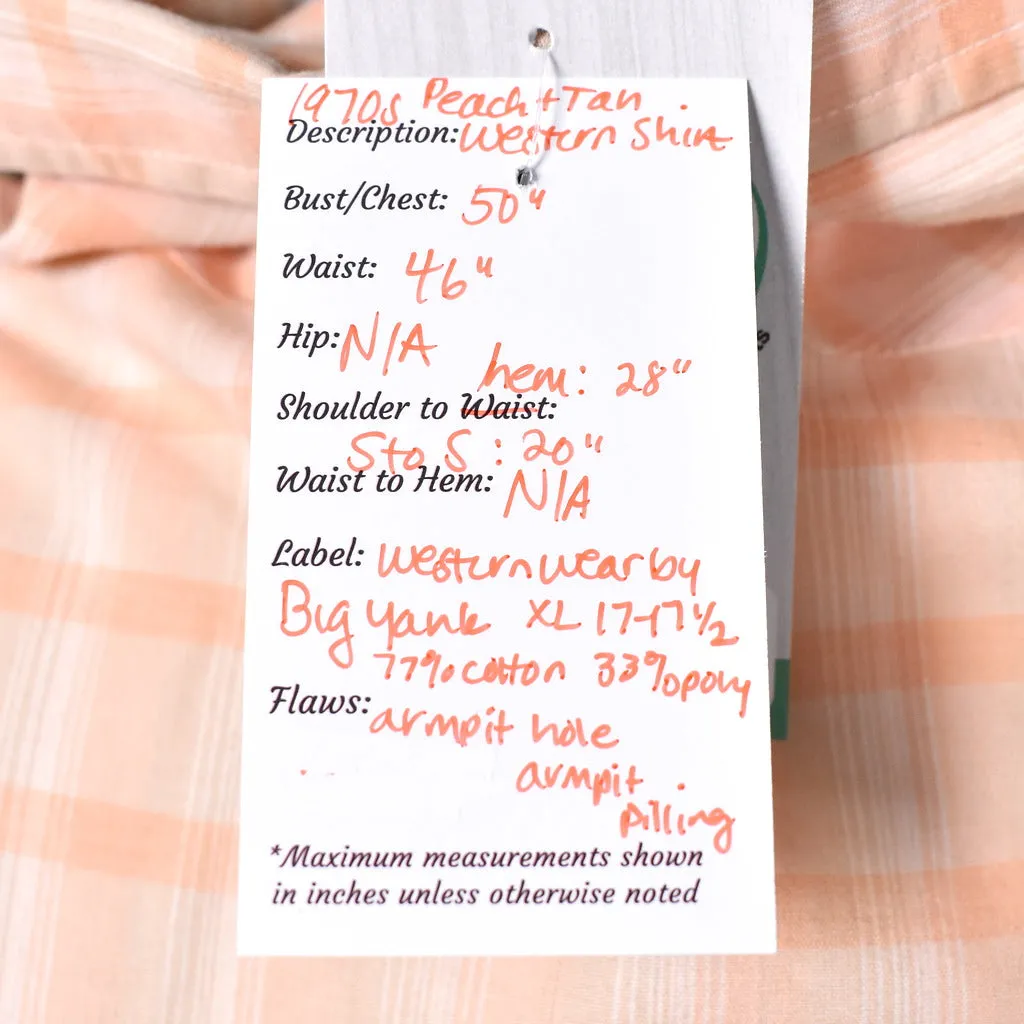 1970s Peach + Tan
Description: Western Shirt
Bust/Chest: 50"
Waist: 46"
Hip: N/A
hem: 28"
Shoulder to Waist:
S to S: 20"
Waist to Hem: N/A
Label: Western wear by
Big Yank XL 17-17 1/2
77% cotton 33% poly
Flaws: armpit hole
armpit
pilling
*Maximum measurements shown
in inches unless otherwise noted